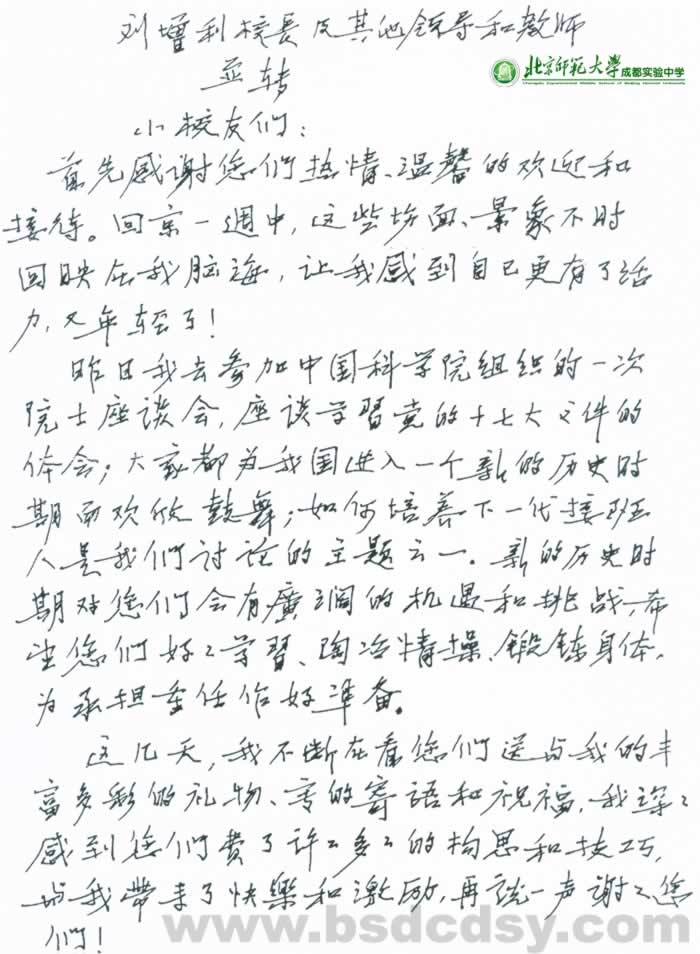 刘增利校長及其他领导和教师
北京师范大学成都实验中学
並转
小校友们：
首先感谢您们热情、温馨的欢迎和
接待。回京一週中，这些场面、景象不时
回映在我脑海，让我感到自己更有了活
力，又年轻了！
昨日我去参加中国科学院组织的一次
院士座谈会，座谈学習党的十七大文件的
体会；大家都为我国进入一个新的历史时
期而欢欣鼓舞；如何培养下一代接班
人是我们讨论的主题之一。新的历史时
期对您们会有廣阔的机遇和挑战，希
望您们好々学習、陶冶情操、锻练身体，
为承担重任作好準备。
这几天，我不断在看您们送与我的丰
富多彩的礼物、写的寄語和祝福，我深々
感到您们費了许々多々的构思和技巧，
与我带来了快樂和激励，再说一声谢々您
们！
www.bsdcdsy.com